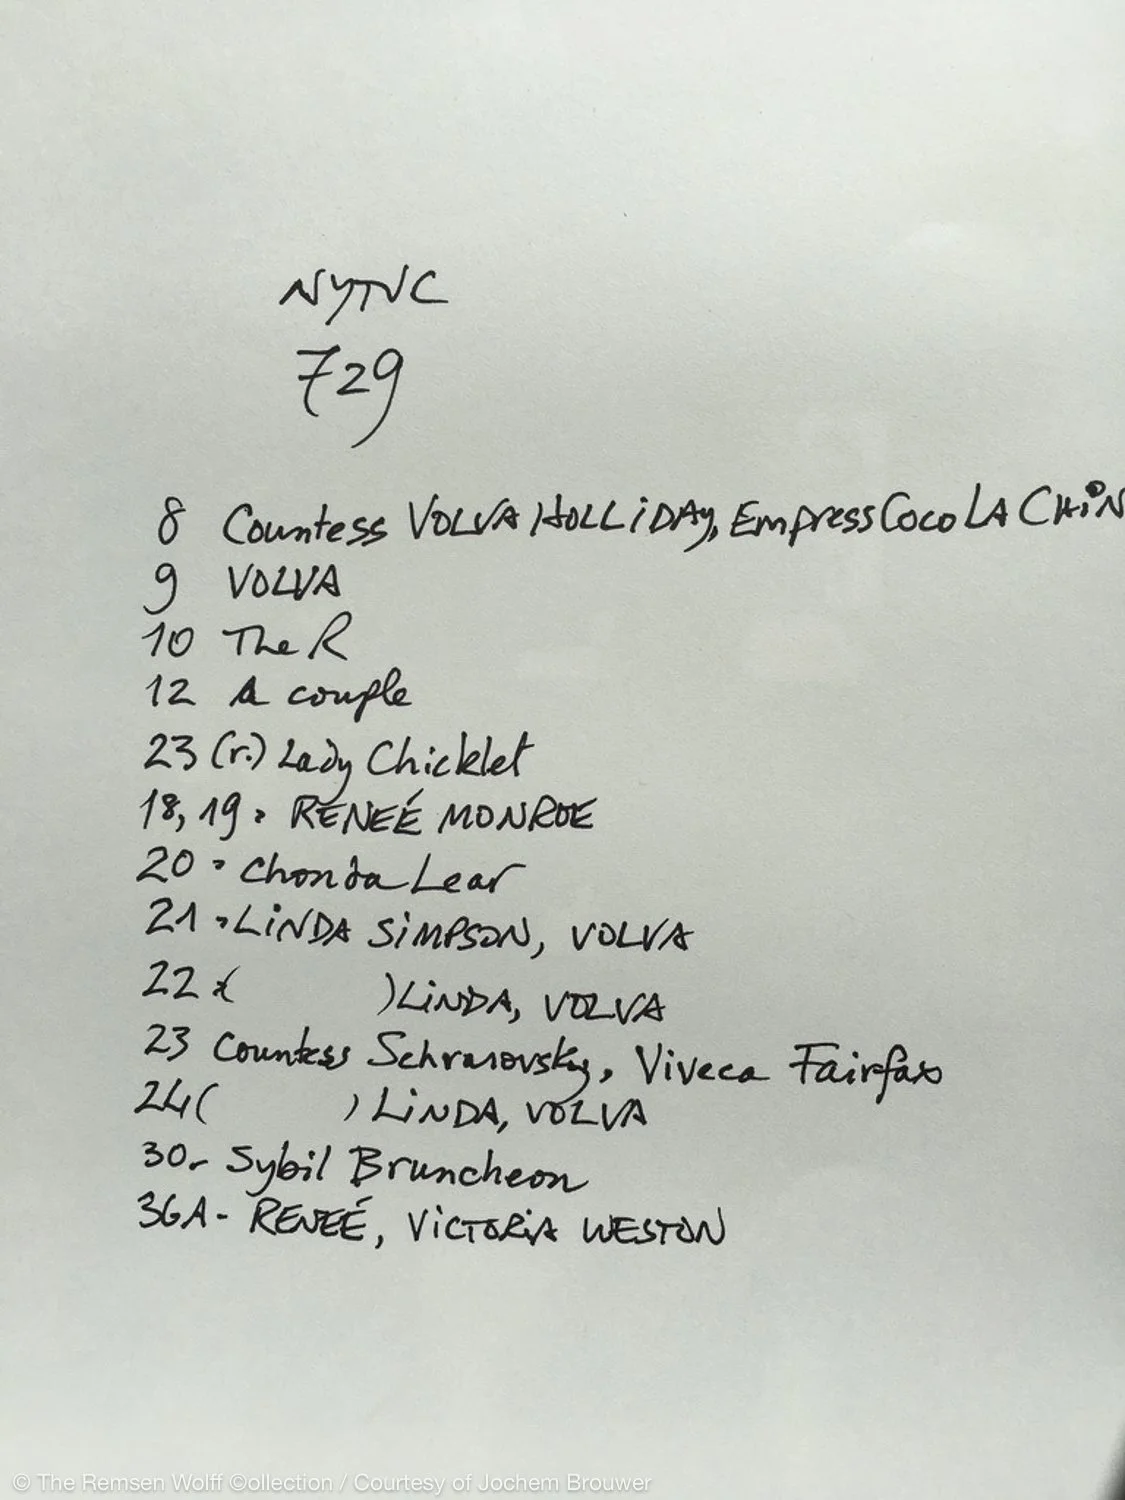 NYTVC
729
8 Countess VOLVA HOLLiDAy, Empress Coco LA CHiN
9 VOLVA
10 The R
12 A couple
23 (r.) Lady Chicklet
18, 19. RENEÉ MONROE
20 . Chonda Lear
21 . LiNDA SiMPSON, VOLVA
22 ( ) LiNDA, VOLVA
23 Countess Fairfax, Viveca
24 ( ) LiNDA, VOLVA
30. Sybil Bruncheon
36A - RENEÉ, VicTORiA WESTON
© The Remsen Wolff ©ollection / Courtesy of Jochem Brouwer